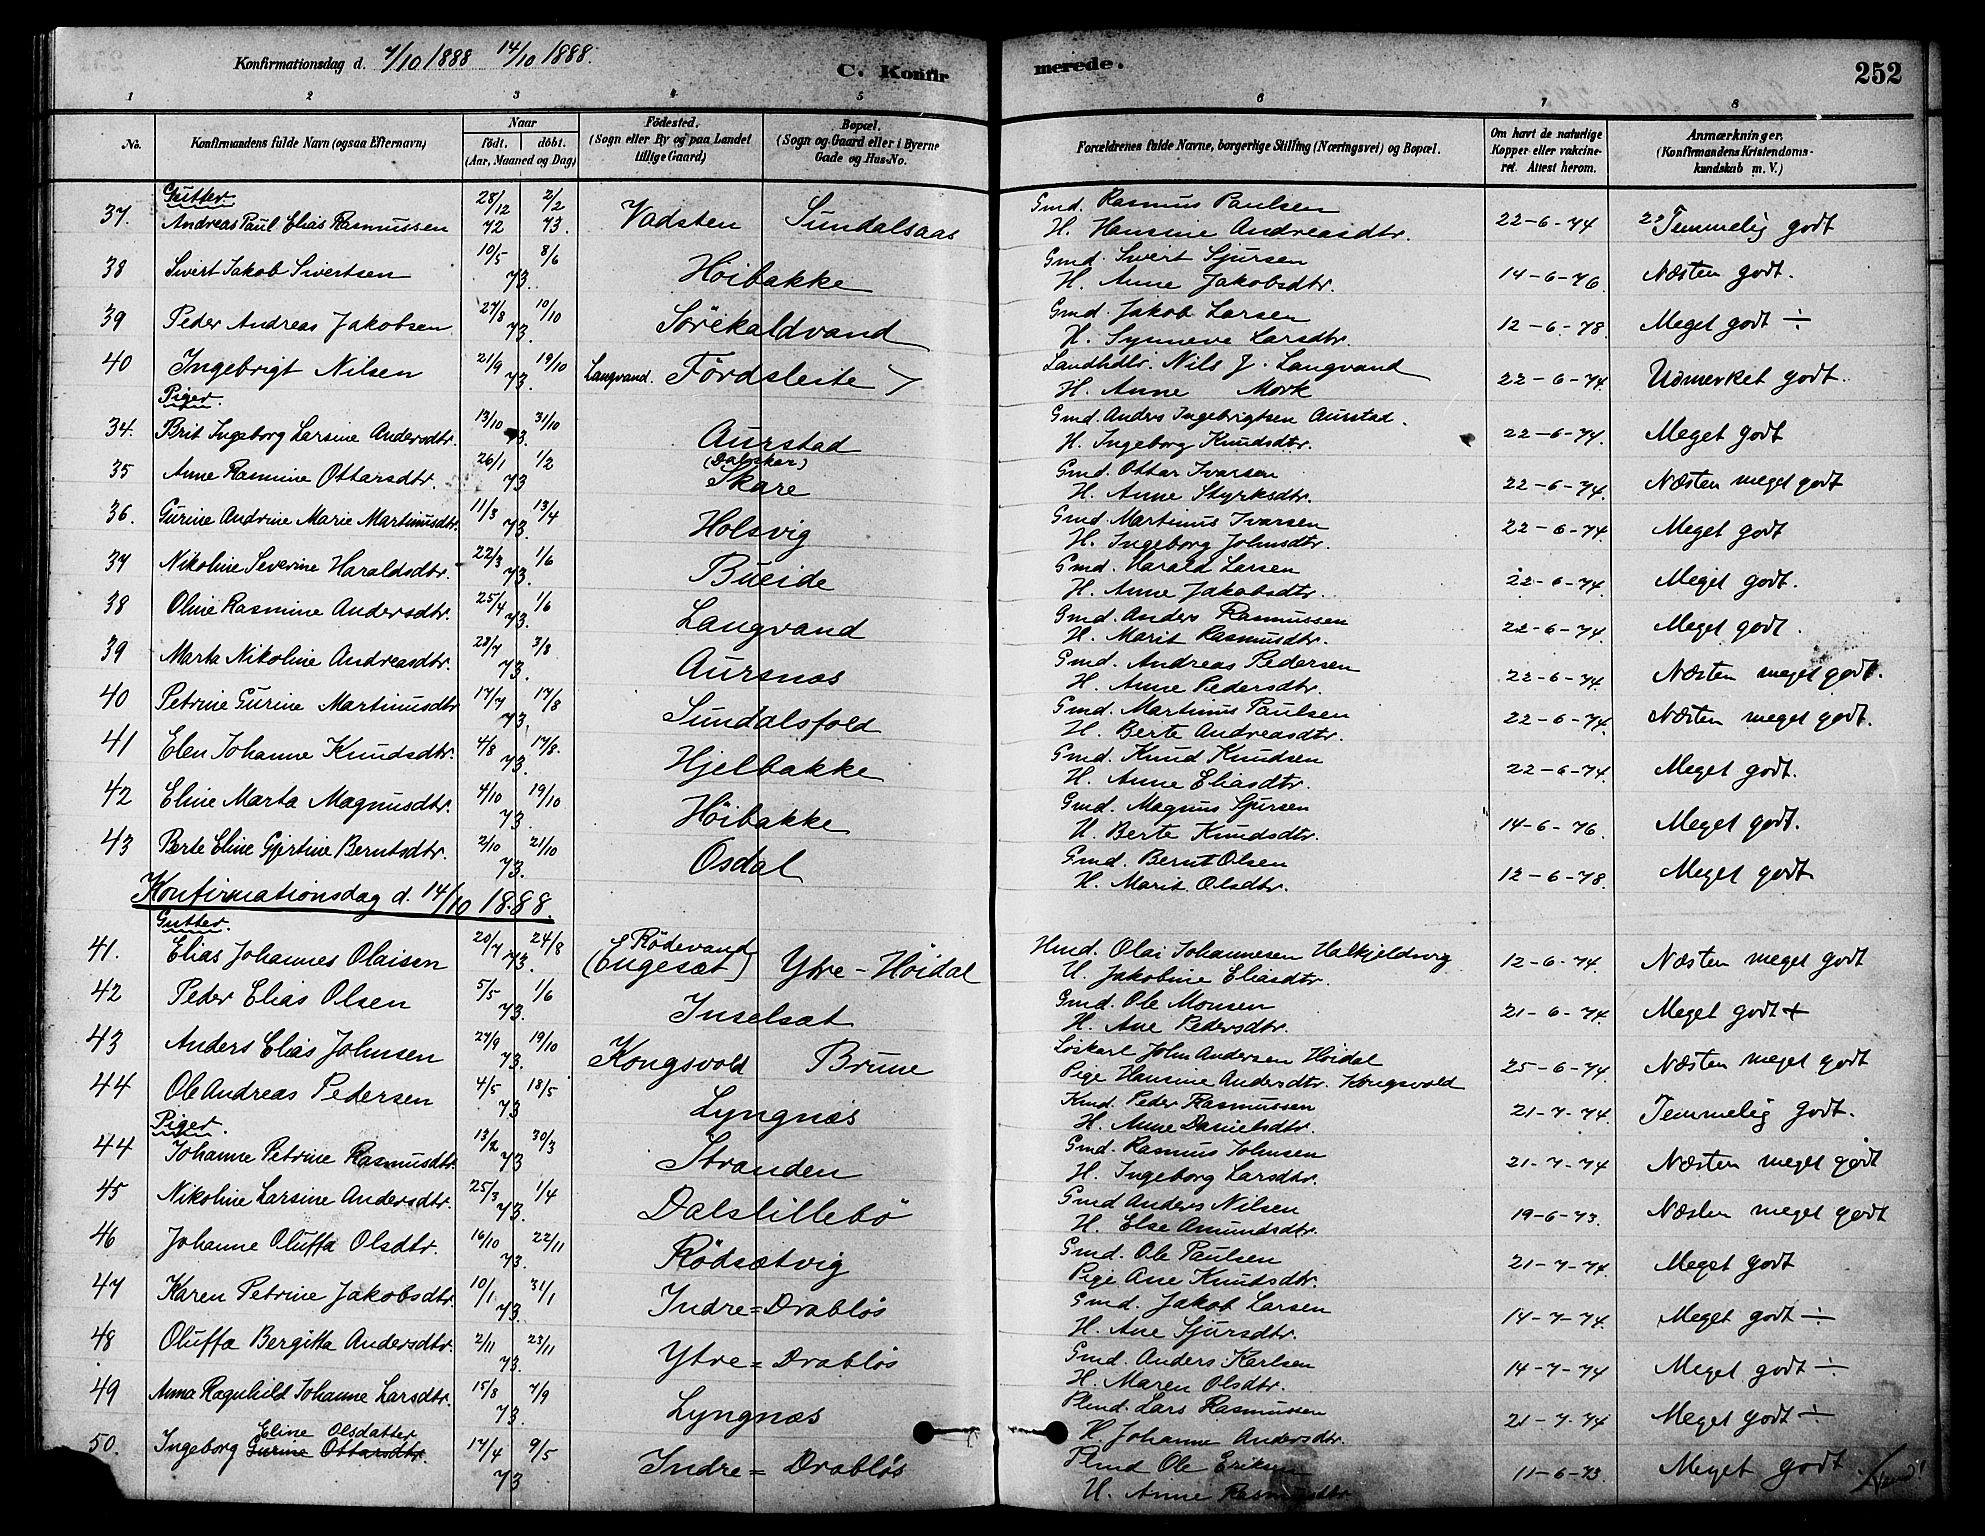 Konfirmationsdag d. 7/10 1888 14/10 1888. C. Konfirmerede. 252
1 2 3 4 5 6 7 8
No. Konfirmandens fulde Navn (ogsaa Efternavn) Naar födt. döbt. (Aar, Maaned og Dag) Födested. (Sogn eller By og paa Landet tillige Gaard) Bopæl. (Sogn og Gaard eller i Byerne Gade og Hus No. Forældrenes fulde Navne, borgerlige Stilling (Næringsvei) og Bopæl. Om havt de naturlige Kopper eller vakcineret. Attest herom. Anmærkninger. (Konfirmandens Kristendomskundskab m. V.)
Gutter
37. Andreas Paul Elias Rasmussen 28/12 72 2/2 73. Vadsten Sundalsaas Gmd. Rasmus Paulsen H. Hansine Andreasdtr. 22-6-74 Temmelig godt
38 Sivert Jakob Sivertsen 10/5 8/6 73. Höibakke Gmd. Sivert Sjursen H. Anne Jakobsdtr. 14-6-76 Næsten godt.
39 Peder Andreas Jakobsen 27/8 19/10 73. Sörekaldvand Gmd. Jakob Larsen H. Synneve Larsdtr. 12-6-78 Meget godt ÷
40 Ingebrigt Nilsen 21/9 19/10 73. Langvand. Fördsleite Landhdlr. Nils J. Langvand H. Anne Mork 22-6-74. Udmerket godt.
Piger.
34. Brit Ingeborg Larsine Andersdtr. 13/10 31/10 73. Aurstad Gmd. Anders Ingebrigtsen Aurstad. H. Ingeborg Knudsdtr. 22-6-74. Meget godt
35 Anne Rasmine Ottarsdtr. 26/1 1/2 73 Skare Gmd. Ottar Ivarsen H. Anne Styrksdtr. 22-6-74. Næsten meget godt
36. Gurine Andrine Marie Martinusdtr. 11/3 13/4 73. Holsvig Gmd. Martinus Ivarsen H. Ingeborg Johnsdtr. 22-6-74. Meget godt
37 Nikoline Severine Haraldsdtr. 22/3 1/6 73. Bueide Gmd. Harald Larsen H. Anne Jakobsdtr. 22-6-74. Meget godt.
38 Oline Rasmine Andersdtr. 25/4 1/6 73. Langvand Gmd. Anders Rasmussen H. Marit Rasmusdtr. 22-6-74. Meget godt.
39 Marta Nikoline Andreasdtr. 28/7 3/8 73. Aursnæs Gmd. Andreas Pedersen H. Anne Pedersdtr. 22-6-74. Næsten meget godt.
40 Petrine Gurine Martinusdtr 17/7 17/8 73. Sundalsfold Gmd. Martinus Paulsen H. Berte Andreasdtr. 22-6-74. Næsten meget godt.
41 Elen Johanne Knudsdtr. 4/8 17/8. 73. Hjelbakke Gmd. Knud Knudsen H. Anne Eliasdtr. 22-6-74. Meget godt.
42 Eline Marta Magnusdtr. 4/10 19/10 73. Höibakke Gmd. Magnus Sjursen H. Berte Knudsdtr. 14-6-76. Meget godt.
43 Berte Eline Gjertine Berntsdtr. 2/10 21/10 73. Osdal Gmd. Bernt Olsen H. Marit Olsdtr. 12-6-78. Meget godt
Konfirmationsdag d. 14/10 1888.
Gutter.
41. Elias Johannes Olaisen 20/7 24/8 73. Rödevand (Engesæt) Ytre-Höidal Hmd. Olai Johannesen Halkjeldsvig H. Jakobine Eliasdtr. 12-6-74. Næsten meget godt
42 Peder Elias Olsen 5/5 1/6 73. Inselsæt Gmd. Ole Monsen H. Ane Pedersdtr. 21-6-74. Meget godt +
43 Anders Elias Johnsen 27/9 19/10 73. Kongsvold Brune Löskarl John Andersen Höidal Pige Hansine Andersdtr. Kongsvold 25-6-74 Næsten meget godt
44 Ole Andreas Pedersen 4/5 18/5 73 Lyngnæs Kmd. Peder Rasmussen H. Anne Danielsdtr. 21-7-74. Temmelig godt.
Piger.
44 Johanne Petrine Rasmusdtr. 13/2 30/3 73 Stranden Gmd. Rasmus Johnsen H. Ingeborg Larsdtr. 21-7-74 Næsten meget godt
45 Nikoline Larsine Andersdtr. 25/3 1/4 73. Dalslillebö Gmd Anders Nilsen H. Else Amundsdtr. 19-6-73. Næsten meget godt
46 Johanne Oluffa Olsdtr. 16/10 22/11 73. Rödsætvig Gmd. Ole Paulsen Pige Ane Knudsdtr. 21-7-74. Meget godt
47 Karen Petrine Jakobsdtr. 10/1 31/1 73. Indre=Drabløs Gmd. Jakob Larsen H. Ane Sjursdtr. 14-7-74. Meget godt ÷
48 Oluffa Bergitta Andersdtr. 2/11 23/11 73. Ytre=Drabløs Gmd. Anders Karlsen H. Maren Olsdtr. 14-7-74 Meget godt ÷
49 Anna Ragnhild Johanne Larsdtr. 15/8 7/9 73. Lyngnæs Plmd. Lars Rasmussen H. Johanne Andersdtr. 21-7-74 Meget godt ÷
50. Ingeborg Gurine Ottarsdtr. Eline Olsdatter 17/4 9/5 73 Indre=Drabløs Plmd Ole Eriksen H. Anne Rasmusdtr 11-6-73. Meget godt